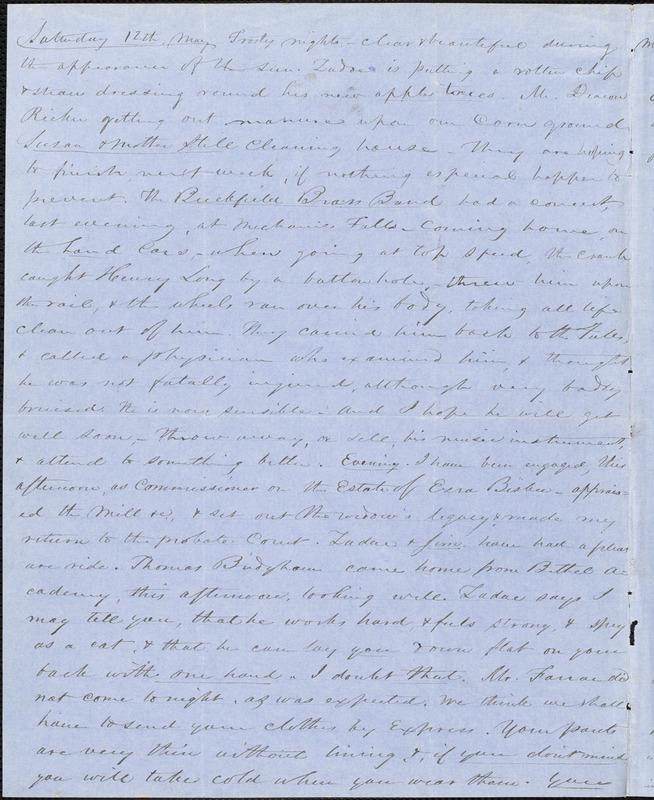 Saturday 12th. May Frosty nights - clear & beautiful during
the appearance of the sun. Zadoc is putting a rotten chip
& straw dressing round his new apple trees. Mr. Deacon
getting out manure upon our Corn ground.
Susan & Mother still cleaning house - They are hoping
to finish next week, if nothing especial happen to
prevent. The Buckfield Brass Band had a concert,
last evening, at Mechanics Falls - Coming home, on
the hand Cars, - when going at top speed, the crank
caught Henry Long by a button hole, threw him upon
the rail, & the wheels ran over his body, taking all life
clean out of him. They carried him back to the Falls,
& called a physician who examined him, & thought
he was not fatally injured, although very badly
bruised. He is now sensible - And I hope he will get
well soon, - throw away, or sell, his music instrument,
& attend to something better. Evening. I have been engaged, this
afternoon, as Commissioner on the Estate of Ezra Bisbee - apprais-
ed the Mill &c, & set out the widow's legacy & made my
return to the probate Court. Zadoc & have had a pleas
ure ride. Thomas Bridgham came home from Bethel A-
cademy, this afternoon, looking well. Zadoc says I
may tell you, that he works hard, & feels strong, & spry
as a cat, & that he can lay you down flat on your
back with one hand. I doubt that. Mr. Farrar did
not come to night, as was expected. We think we shall
have to send your clothes by Express. Your pants
are very thin without lining &, if you dont mind
you will take cold when you wear them. Your